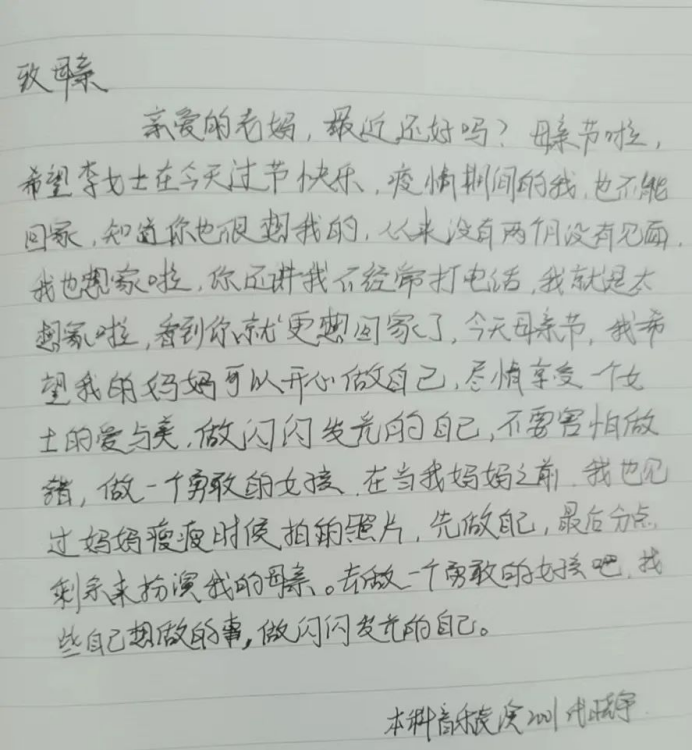 致母亲
亲爱的老妈，最近还好吗？母亲节啦，
希望李女士在今天过节快乐，疫情期间的我，也不能
回家，知道你也很想我的，从来没有两个月没有见面，
我也想家啦，你还讲我不经常打电话，我就是太
想家啦，看到你就更想回家了，今天母亲节，我希
望我的妈妈可以开心做自己，尽情享受一个女
士的爱与美，做闪闪发光的自己，不要害怕做
错，做一个勇敢的女孩，在当我妈妈之前，我也见
过妈妈瘦瘦时候拍的照片，先做自己，最后分点
剩余来扮演我的母亲。去做一个勇敢的女孩吧，找
些自己想做的事，做闪闪发光的自己。
本科音乐表演2001